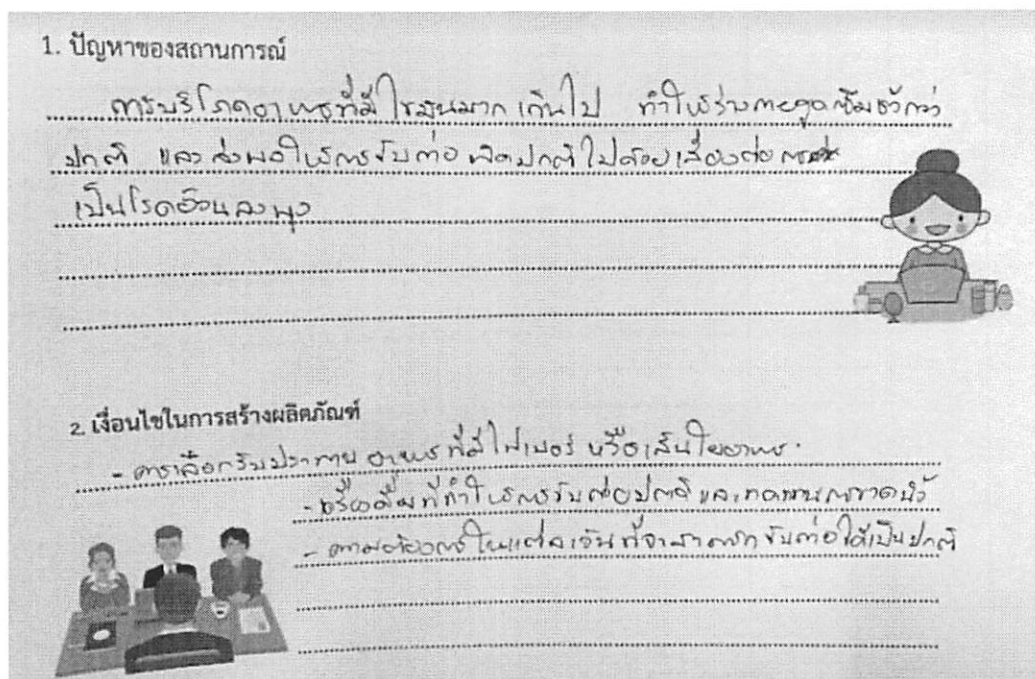 1. ปัญหาของสถานการณ์
การบริโภคอาหารที่มีไขมันมากเกินไป ทำให้ร่างกายดูดซึมช้ากว่า
ปกติ และส่งผลให้การขับถ่ายผิดปกติไปด้วยเสี่ยงต่อ
เป็นโรคอ้วนลงพุง
2. เงื่อนไขในการสร้างผลิตภัณฑ์
- การเลือกรับประทาน อาหารที่มีไฟเบอร์ หรือเส้นใยอาหาร.
- เครื่องดื่มที่ทำให้การขับถ่ายปกติ และ
- ความต้องการในแต่ละวันที่จะสามารถขับถ่ายได้เป็นปกติ